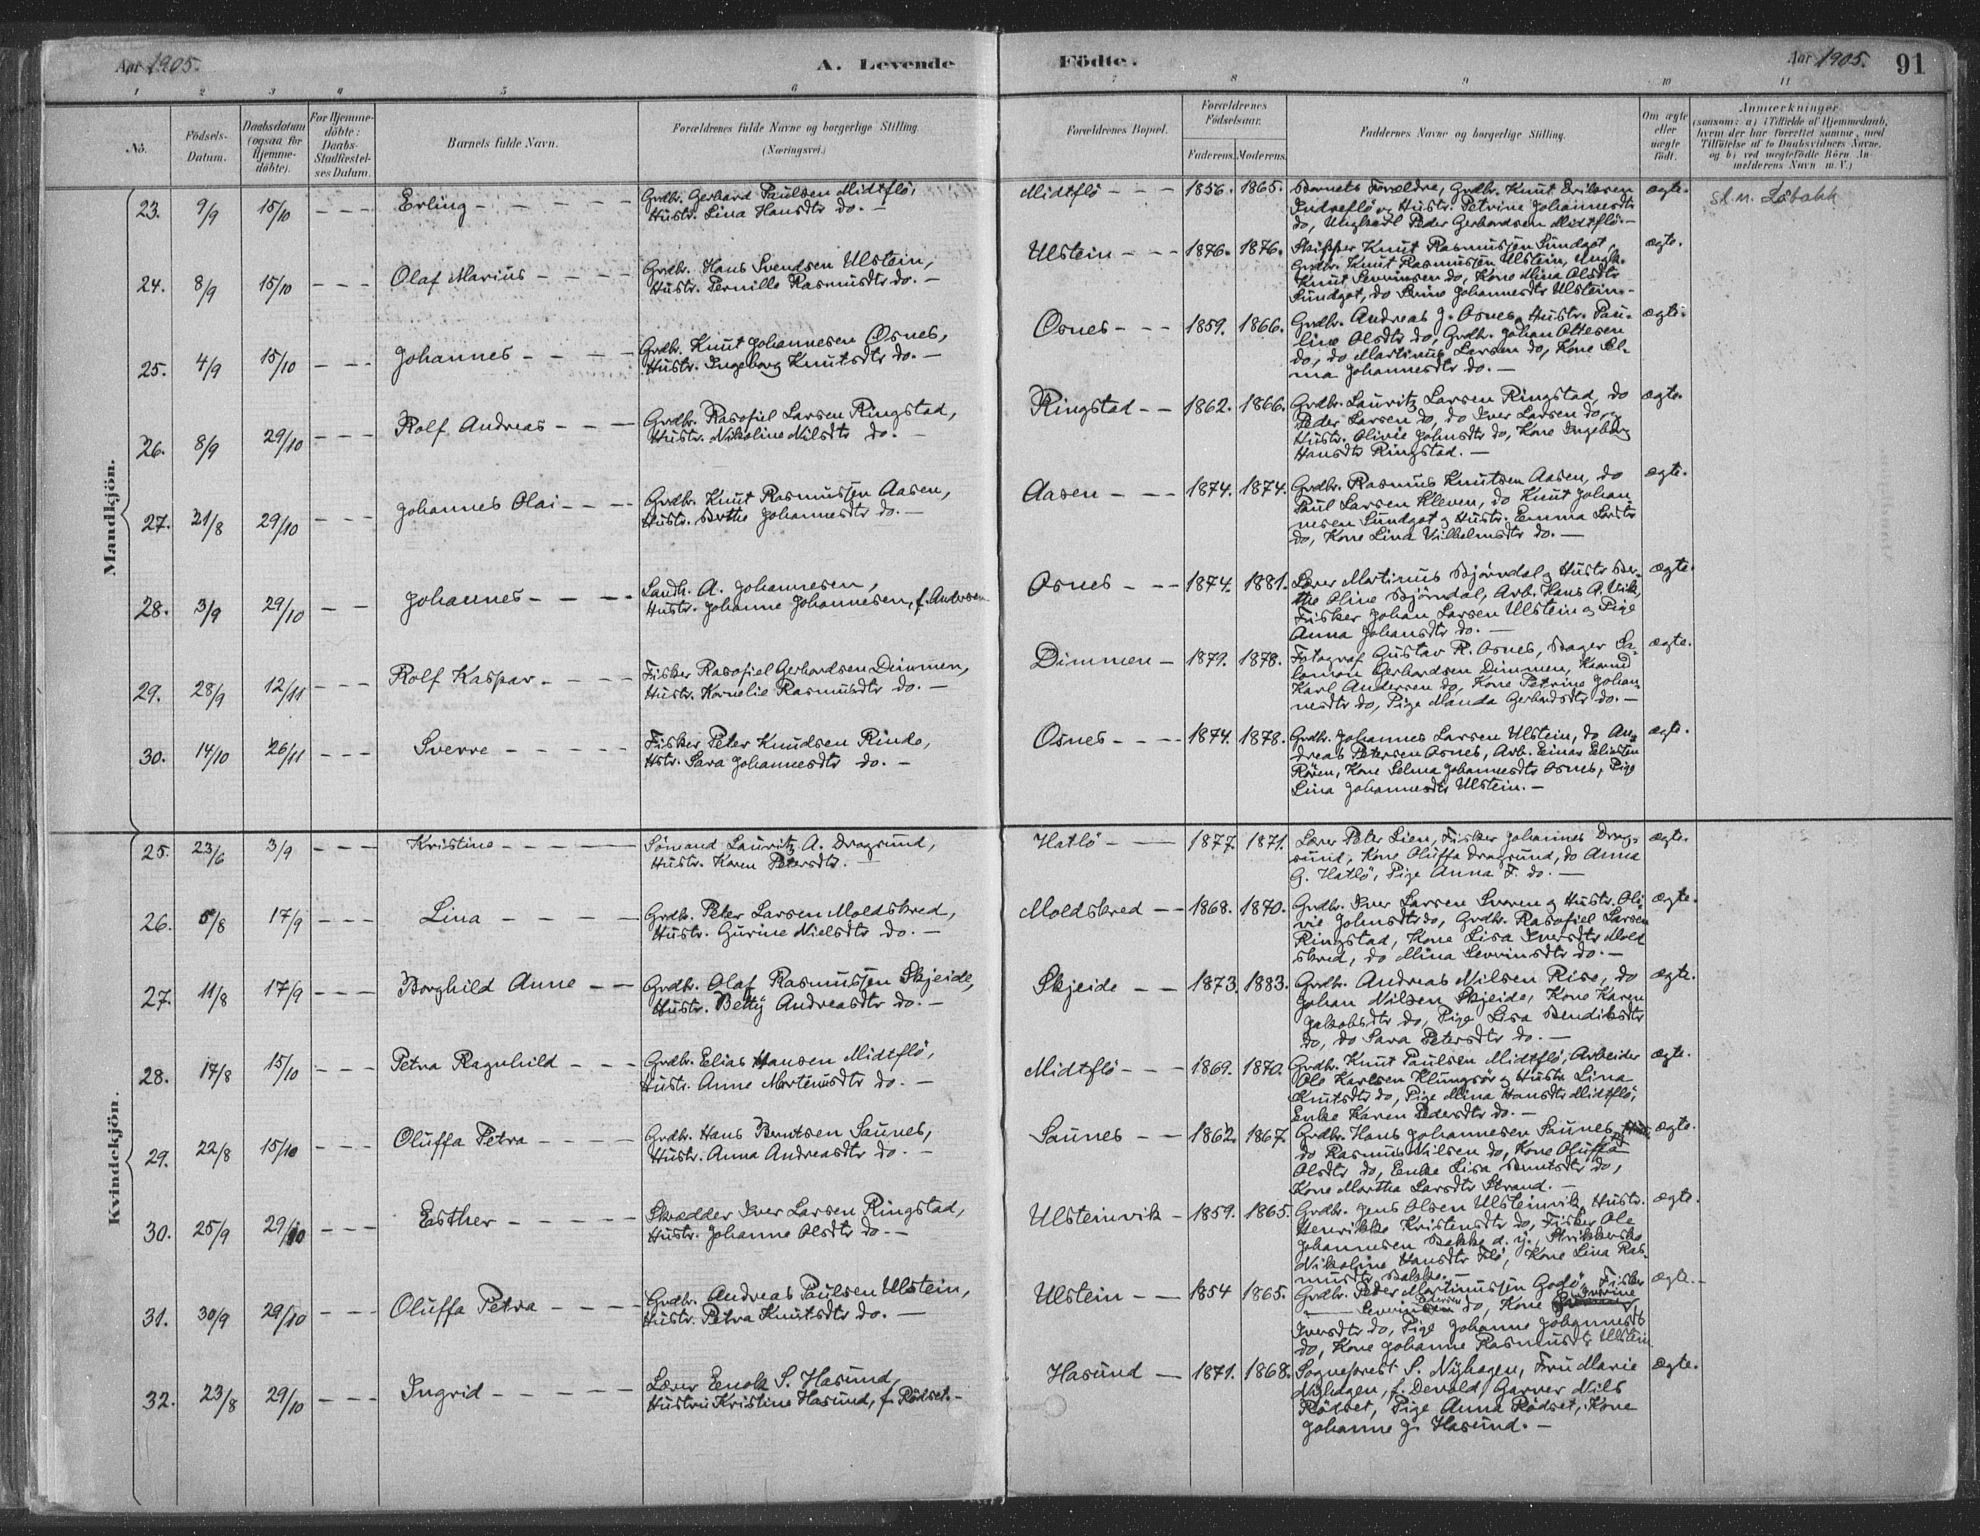 Aar 1905.
A. Levende Födte.
Aar 1905.
91
1 2 3 4 5 6 7 8 9 10 11
No.
Födsels-Datum.
Daabsdatum (ogsaa for Hjemme-döbte).
For Hjemme-döbte: Daabs-Stadfæstel-ses Datum.
Barnets fulde Navn.
Forældrenes fulde Navne og borgerlige Stilling. (Næringsvei.)
Forældrenes Bopæl.
Forældrenes Födselsaar.
Faderens. Moderens.
Faddernes Navne og borgerlige Stilling.
Om ægte eller uægte födt.
Anmærkninger
(saasom: a) i Tilfælde af Hjemmedaab, hvem der har forrettet samme, med Tilföielse af to Daabsvidners Navne, og b) ved uægtefödte Börn An-melderens Navn m. V.)
Mandkjön.
23. 9/9 15/10 - - - Erling - - - - -
Grdbr. Gerhard Paulsen Midtflö,
Hustr. Lina Hansdtr do. -
Midtflö - - - 1856. 1865.
Barnets Forældre, Grdbr. Knut Eriksen
Indreflö og Hustr. Petrine Johannesdtr
do, Ungkarl Peder Gerhardsen Midtflö. -
ægte.
24. 8/9 15/10 - - - Olaf Marius - - - -
Grdbr. Hans Svendsen Ulstein,
Hustr. Pernille Rasmusdtr do. -
Ulstein - - - 1876. 1876.
Skipper Knut Rasmussen Sundgot,
Grdbr. Knut Rasmussen Ulstein, Ungk.
Knut Severinsen do, Kone Mina Olsdtr
Sundgot, do Johannesdtr Ulstein -
ægte.
25. 4/9 15/10 - - - Johannes - - - -
Grdbr. Knut Johannesen Osnes,
Hustr. Ingeborg Knutsdtr do. -
Osnes - - - 1859. 1866.
Grdbr. Andreas J. Osnes, Hustr. Pau-
line Olsdtr do, Grdbr. Johan Ottesen
do, do Martinus Larsen do, Kone Sel-
ma Johannesdtr do. -
ægte.
26. 8/9 29/10 - - - Rolf Andreas - - -
Grdbr. Rasofiel Larsen Ringstad,
Hustr. Nikoline Nilsdtr do. -
Ringstad - - 1862. 1866.
Grdbr. Lauritz Larsen Ringstad, do
Peder Larsen do, do Iver Larsen do og
Hustr. Olivie Johnsdtr do, Kone Ingeborg
Hansdtr Ringstad. -
ægte.
27. 21/8 29/10 - - - Johannes Olai - - -
Grdbr. Knut Rasmussen Aasen,
Hustr. Berthe Johannesdtr do. -
Aasen - - - 1874. 1874.
Grdbr. Rasmus Knutsen Aasen, do
Paul Larsen Kleven, do Knut Johan
nesen Sundgot og Hustr. Emma Larsdtr
do, Kone Lina Vilhelmsdtr do. -
ægte.
28. 3/9 29/10 - - Johannes - - - -
Landh. A. Johannesen,
Hustr. Johanne Johannesen, f. Andersen
Osnes - - - 1874. 1881.
Lærer Martinus Bjørndal og Hustr. Ber-
the Oline Bjørndal, Arb. Hans A. Vik,
Fisker Johan Larsen Ulstein og Pige
Anna Johansdtr do. -
ægte.
29. 28/9 12/11 - - - Rolf Kaspar - - - -
Fisker Rasofiel Gerhardsen Dimmen,
Hustr. Kornelie Rasmusdtr do. -
Dimmen - 1879. 1878.
Fotograf Gustav R. Osnes, Bager Sa-
lomon Gerhardsen Dimmen,
Karl Andersen do, Kone Petrine Johan-
nesdtr do, Pige Manda Gerhardsdtr do. -
ægte.
30. 14/10 26/11 - - - Sverre - - - - -
Fisker Peter Knudsen Rinde,
Hstr. Sara Johannesdtr do. -
Osnes - - - 1874. 1878.
Grdbr. Johannes Larsen Ulstein, do An-
dreas Petersen Osnes, Arb. Einar Eliassen
Røren, Kone Selma Johannesdtr Osnes, Pige
Lina Johannesdtr Ulstein. -
ægte.
Kvindekjön.
25. 23/6 3/9 - - - Kristine - - - -
Sömand Lauritz A. Dragsund,
Hustr. Karen Petersdtr. -
Hatlö - - 1877. 1871.
Lærer Peter Lien, Fisker Johannes Drag-
sund, Kone Oluffa Dragsund, do Anna
G. Hatlö, Pige Anna F. do. -
ægte.
26. 5/8 17/9 - - - Lina - - - - -
Grdbr. Peter Larsen Moldskred,
Hustr. Gurine Nielsdtr do. -
Moldskred - - 1868. 1870.
Grdbr. Iver Larsen og Hustr. Oli-
vie Johnsdtr do, Grdbr. Rasofiel Larsen
Ringstad, Kone Lisa Iversdtr Mold
skred, do Mina Severinsdtr do. -
ægte.
27. 11/8 17/9 - - - Borghild Anne - -
Grdbr. Olaf Rasmussen Skjeide,
Hustr. Betty Andreasdtr do. -
Skjeide - - 1873. 1883.
Grdbr. Andreas Nilsen Rise, do
Johan Nilsen Skjeide, Kone Karen
Jakobsdtr do, Pige Lisa Bendiksdtr
do, do Sara Petersdtr do. -
ægte.
28. 17/8 15/10 - - - Petra Ragnhild - - -
Grdbr. Elias Hansen Midtflö,
Hustr. Anne Martenusdtr do. -
Midtflö - - - 1869. 1870.
Grdbr. Knut Paulsen Midtflö, Arbeider
Ole Karlsen Klungsör og Hustr. Lina
Knutsdtr do, Pige Mina Hansdtr Midtflö,
Enke Karen Pedersdtr do. -
ægte.
29. 22/8 15/10 - - - Oluffa Petra - - - -
Grdbr. Hans Berntsen Saunes,
Hustr. Anna Andreasdtr do. -
Saunes - - 1862. 1867.
Grdbr. Hans Johannesen Saunes,
do Rasmus Nilsen do, Kone Oluffa
Olsdtr do, Enke Lisa Berntsdtr do,
Kone Martha Larsdtr Strand. -
ægte.
30. 25/9 29/10 - - - Easther - - - - -
Skrædder Iver Larsen Ringstad,
Hustr. Johanne Olsdtr do. -
Ulsteinvik - 1859. 1865.
Grdbr. Jens Olsen Ulsteinvik, Hustr.
Henrikke Kristensdtr do, Fisker Ole
Johannesen Bakke d. y., Strikkerske
Nikoline Hansdtr Flö, Kone Lina Ras-
musdtr Bakke. -
ægte.
31. 30/9 29/10 - - - Oluffa Petra - - - -
Grdbr. Andreas Paulsen Ulstein,
Hustr. Petra Knutsdtr do. -
Ulstein - - 1854 1865.
Grdbr. Peder Martinussen Godö, Fisker
Severin Pedersen do, Kone
Iversdtr do, Pige Johanne Johannesdtr
do, Kone Johanne Rasmusdtr Ulstein.
ægte. -
32. 23/8 29/10 - - - Ingrid - - - - -
Lærer Enok S. Hasund,
Hustru Kristine Hasund, f. Rödset. -
Hasund - 1871. 1868.
Sogneprest S. Nyhagen, Fru Marie
Nyhagen, f. Devold, Garver Nils
Rödset, Pige Anna Rödset, Kone
Johanne J. Hasund. -
ægte.